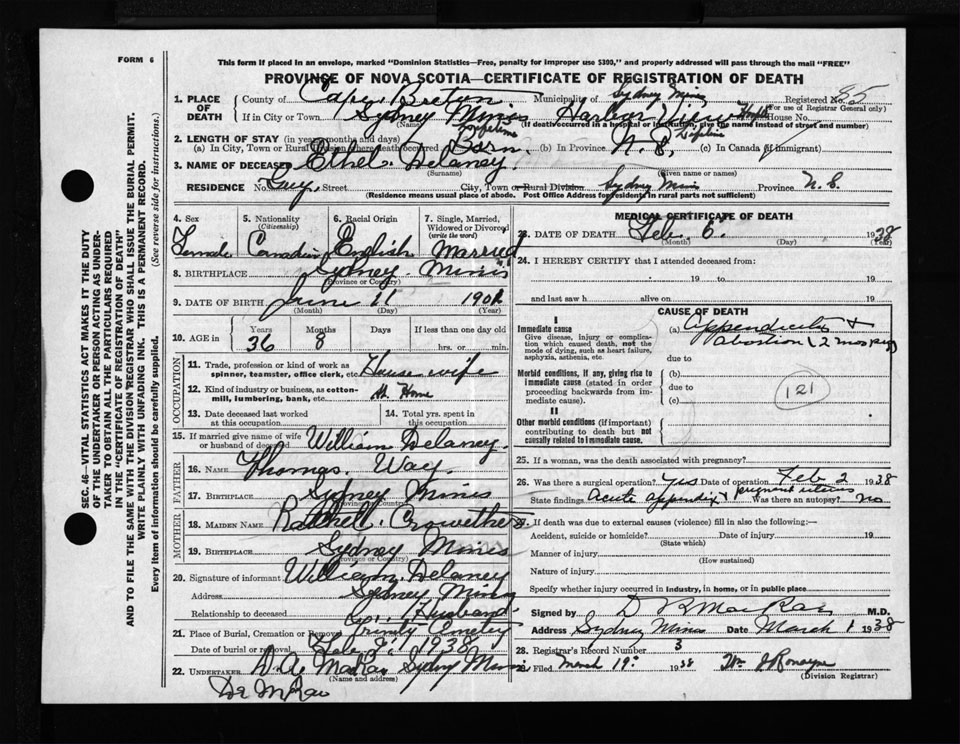 FORM 6
This form if placed in an envelope, marked "Dominion Statistics—Free, penalty for improper use $300," and properly addressed will pass through the mail "FREE"
PROVINCE OF NOVA SCOTIA—CERTIFICATE OF REGISTRATION OF DEATH
SEC. 46—VITAL STATISTICS ACT MAKES IT THE DUTY
OF THE UNDERTAKER OR PERSON ACTING AS UNDER-
TAKER TO OBTAIN ALL THE PARTICULARS REQUIRED
IN THE "CERTIFICATE OF REGISTRATION OF DEATH"
AND TO FILE THE SAME WITH THE DIVISION REGISTRAR WHO SHALL ISSUE THE BURIAL PERMIT.
WRITE PLAINLY WITH UNFADING INK. THIS IS A PERMANENT RECORD.
Every item of information should be carefully supplied. (See reverse side for instructions.)
1. PLACE OF DEATH County of Cape Breton Municipality of Sydney Mines Registered No. 85
(For use of Registrar General only)
If in City or Town Sydney Mines Harbor View House No.
(Name) (If death occurred in a hospital or institution, give the name instead of street and number)
2. LENGTH OF STAY (in years, months and days)
(a) In City, Town or Rural Division where death occurred Born (b) In Province N. S. (c) In Canada (if immigrant)
3. NAME OF DECEASED Ethel Delaney
(Surname) (Given name or names)
RESIDENCE No. Guy Street City, Town or Rural Division Sydney Mines Province N. S.
(Residence means usual place of abode. Post Office Address for resident in rural parts not sufficient)
4. Sex 5. Nationality (Citizenship) 6. Racial Origin 7. Single, Married, Widowed or Divorced (write the word)
Female Canadian English Married
8. BIRTHPLACE Sydney Mines
(Province or Country)
9. DATE OF BIRTH June 11
(Month) (Day) (Year)
10. AGE in Years Months Days If less than one day old
36 8 hrs. or min.
OCCUPATION
11. Trade, profession or kind of work as spinner, teamster, office clerk, etc. House wife
12. Kind of industry or business, as cotton-mill, lumbering, bank, etc. At Home
13. Date deceased last worked at this occupation
14. Total yrs. spent in this occupation
15. If married give name of wife or husband of deceased William Delaney
FATHER
16. NAME Thomas Way
17. BIRTHPLACE Sydney Mines
MOTHER
18. MAIDEN NAME Crowther
19. BIRTHPLACE Sydney Mines
(Province or Country)
20. Signature of informant William Delaney
Address Sydney Mines
Relationship to deceased Husband
21. Place of Burial, Cremation or Removal Trinity Cemetery
Date of burial or removal Feb 1938
22. UNDERTAKER D. A. McRae Sydney Mines
(Name and address)
MEDICAL CERTIFICATE OF DEATH
23. DATE OF DEATH Feb. 6 1938
(Month) (Day) (Year)
24. I HEREBY CERTIFY that I attended deceased from:
19 to 19
and last saw h alive on 19
CAUSE OF DEATH
I
Immediate cause
Give disease, injury or complication which caused death, not the mode of dying, such as heart failure, asphyxia, asthenia, etc.
(a) Appendicitis + abortion (2 mos preg)
due to
Morbid conditions, if any, giving rise to immediate cause (stated in order proceeding backwards from immediate cause).
(b)
due to
(c)
121
II
Other morbid conditions (if important) contributing to death but not causally related to immediate cause.
25. If a woman, was the death associated with pregnancy?
26. Was there a surgical operation? Yes Date of operation Feb 2 1938
State findings Acute appendix + pregnant uterus Was there an autopsy? No
27. If death was due to external causes (violence) fill in also the following:—
Accident, suicide or homicide? Date of injury 19
(State which)
Manner of injury
(How sustained)
Nature of injury
Specify whether injury occurred in industry, in home, or in public place
Signed by D R MacRae M.D.
Address Sydney Mines Date March 1 1938
28. Registrar's Record Number 3
29. Filed March 19 1938
(Division Registrar)